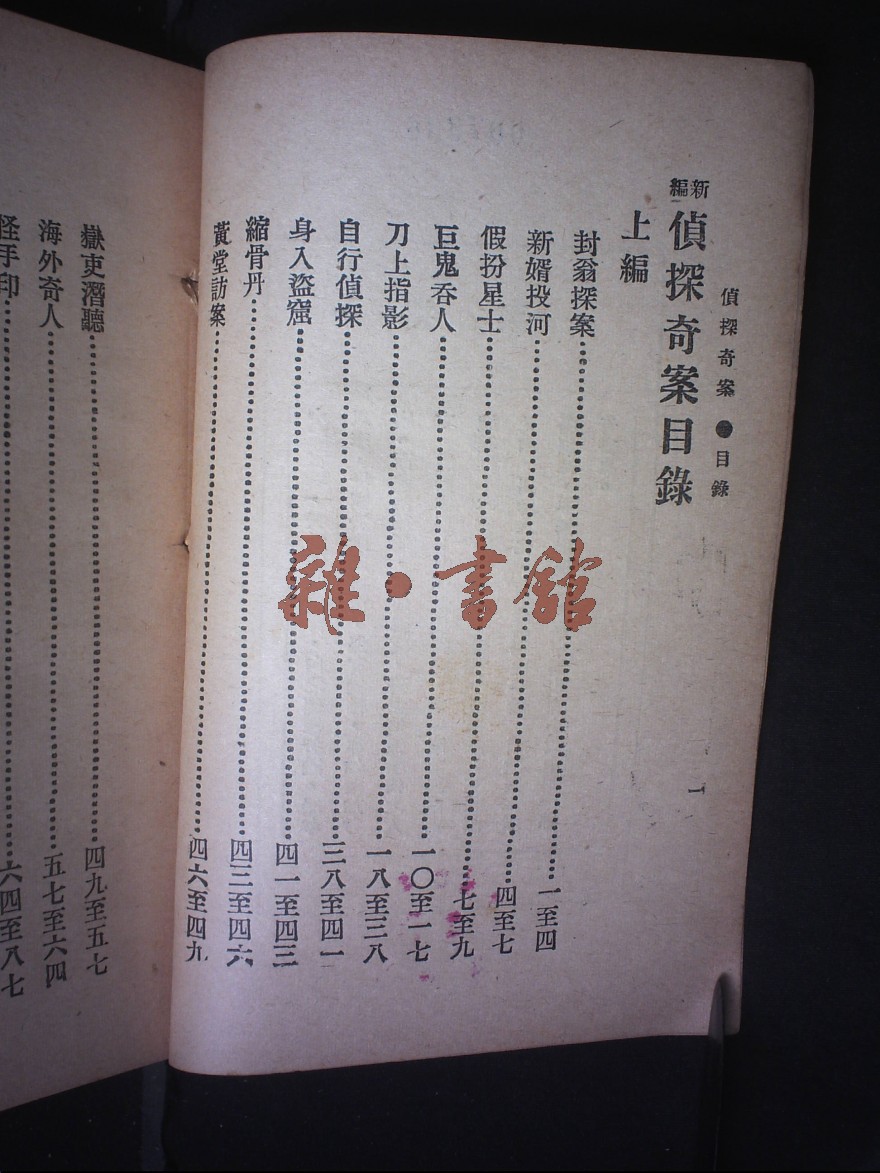 偵探奇案●目錄
一
新編偵探奇案目錄
上編
封翁探案……一至四
新婿投河……四至七
假扮星士……七至九
巨鬼吞人……一〇至一七
刀上指影……一八至三八
自行偵探……三八至四一
身入盜窟……四一至四三
縮骨丹……四三至四六
黃堂訪案……四六至四九
嶽吏潛聽……四九至五七
海外奇人……五七至六四
怪手印……六四至八七
雜·書館